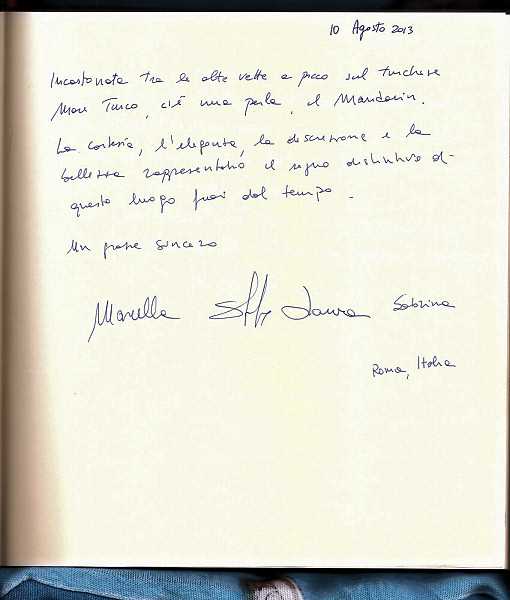 10 Agosto 2013
Incastonata tra le alte vette a picco sul turchese
Mare Turco, c'è una perla, il Mandarin.
La cortesia, l'eleganza, la discrezione e la
bellezza rappresentano il segno distintivo di
questo luogo fuori dal tempo.
Un grazie sincero
Marcella Laura Sabrina
Roma, Italia